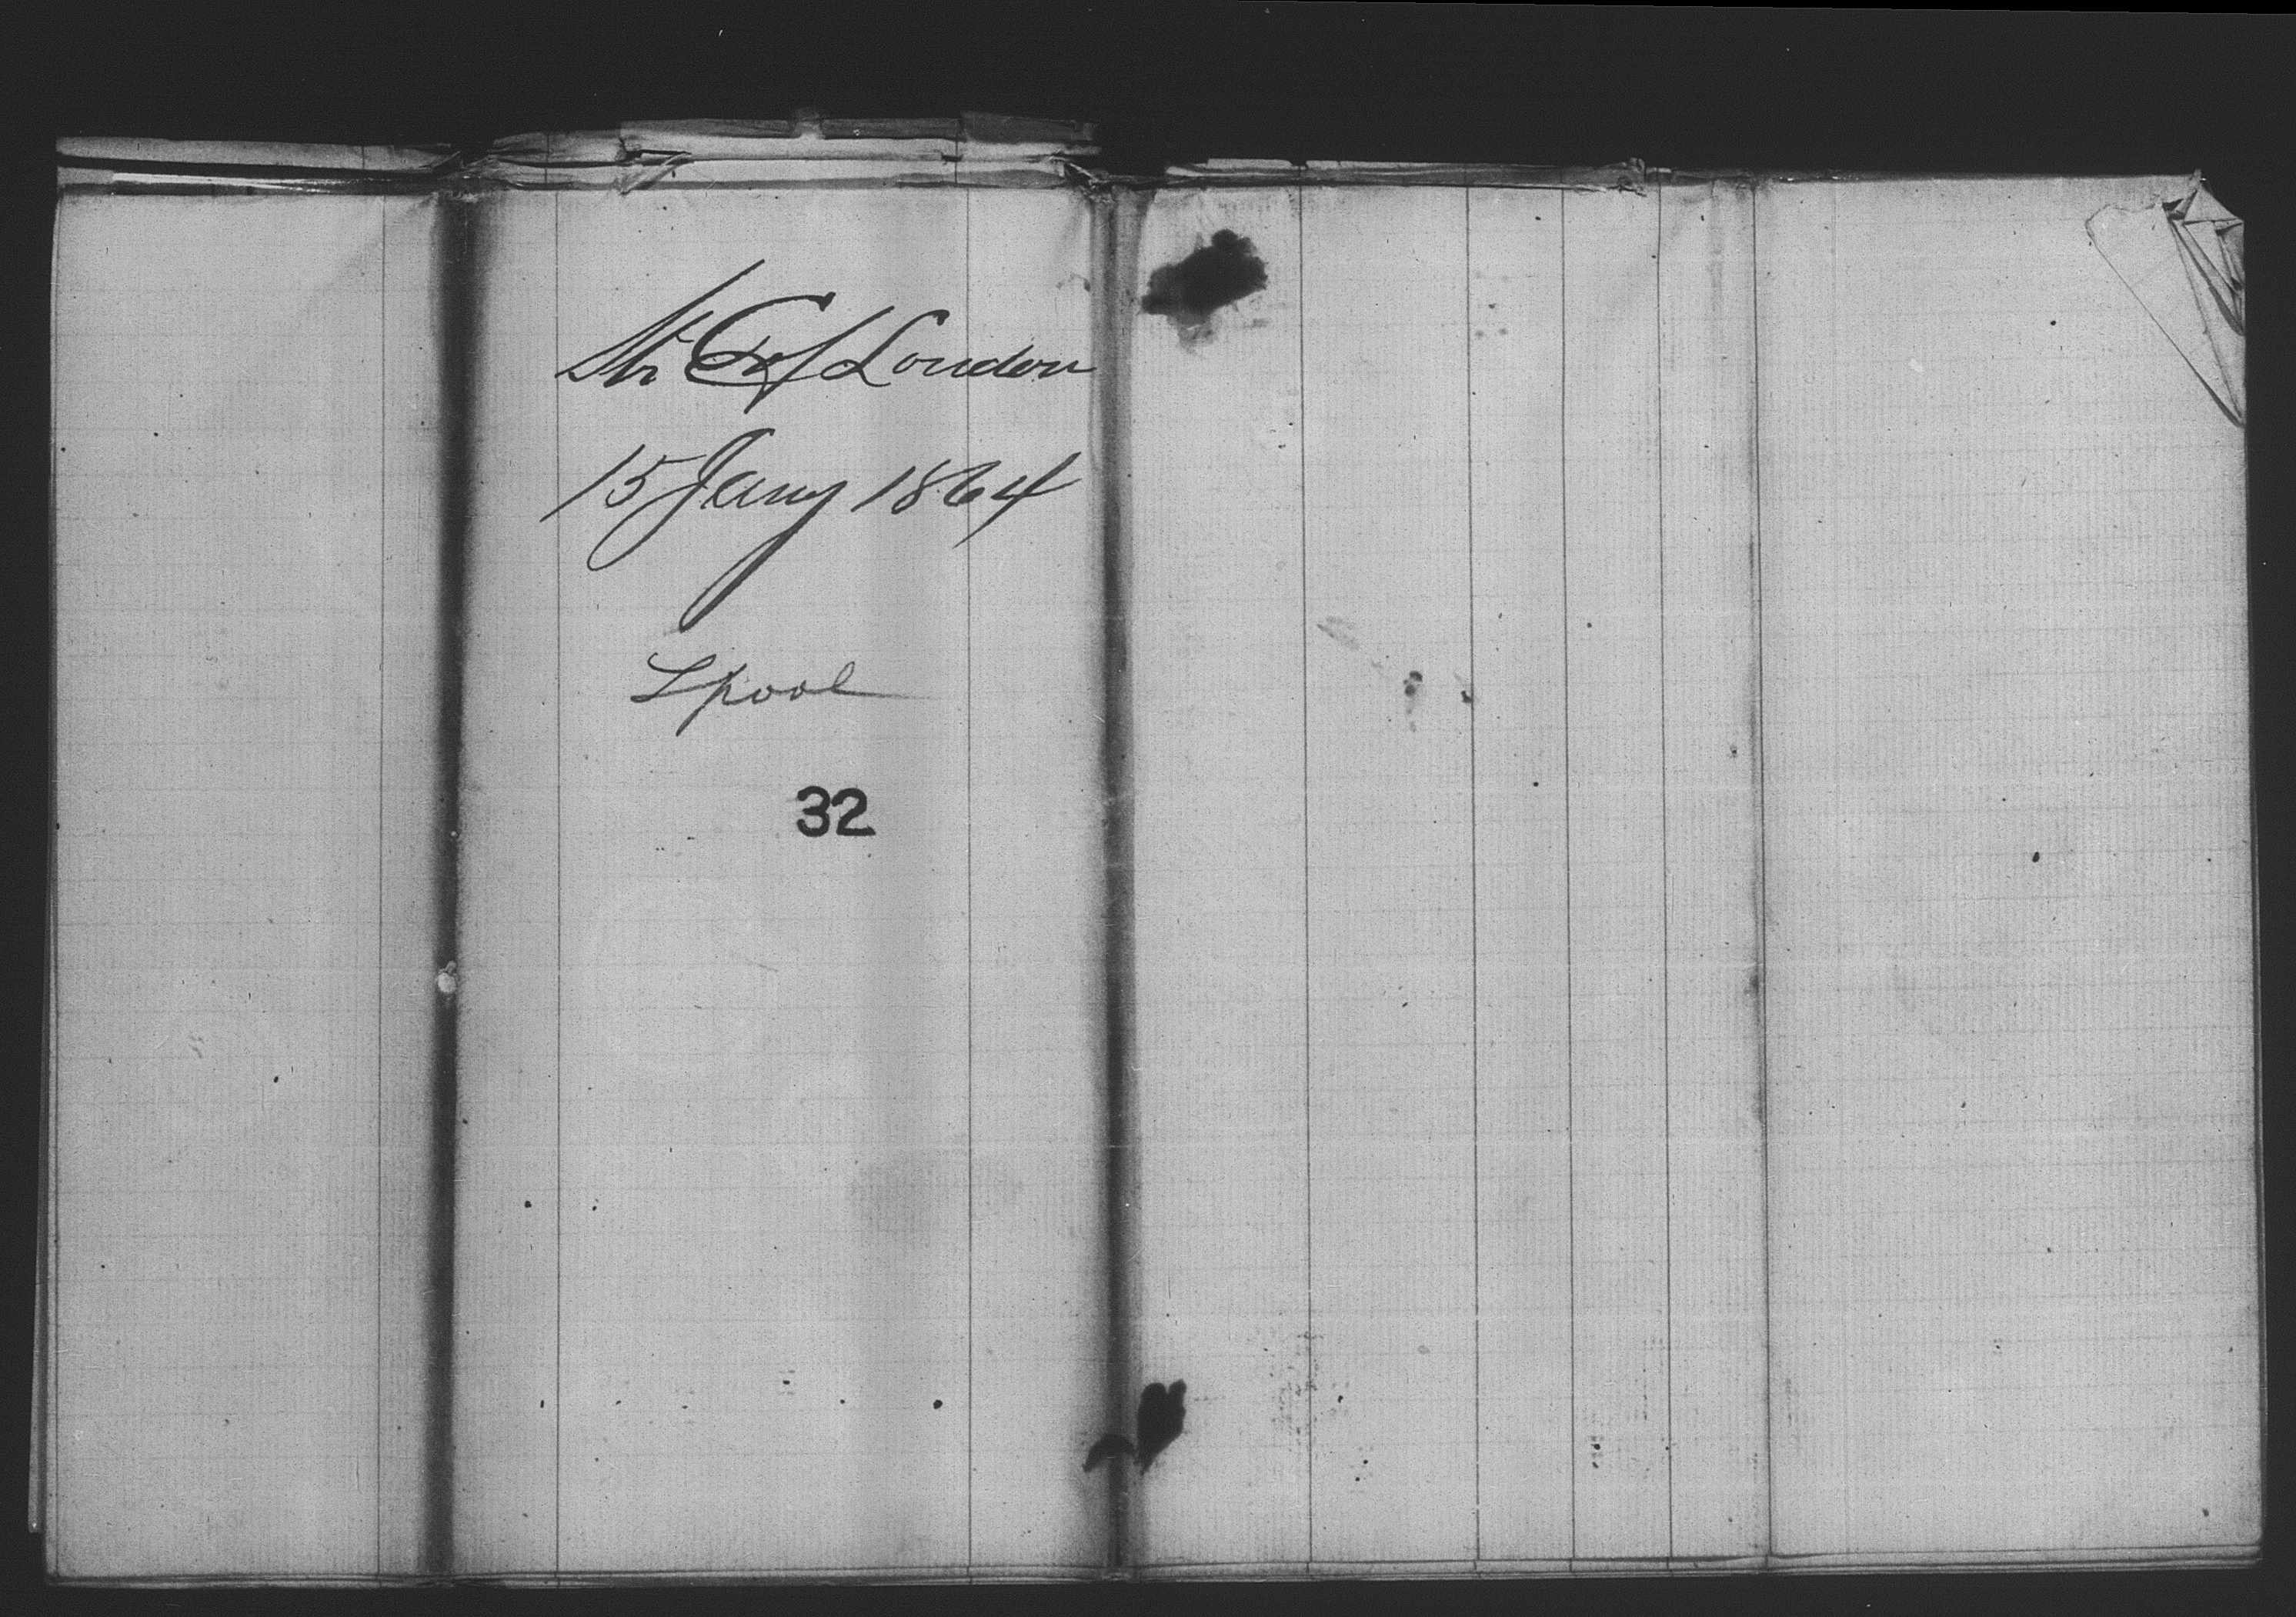 Str C of London
15 Jany 1864
Lpool
32